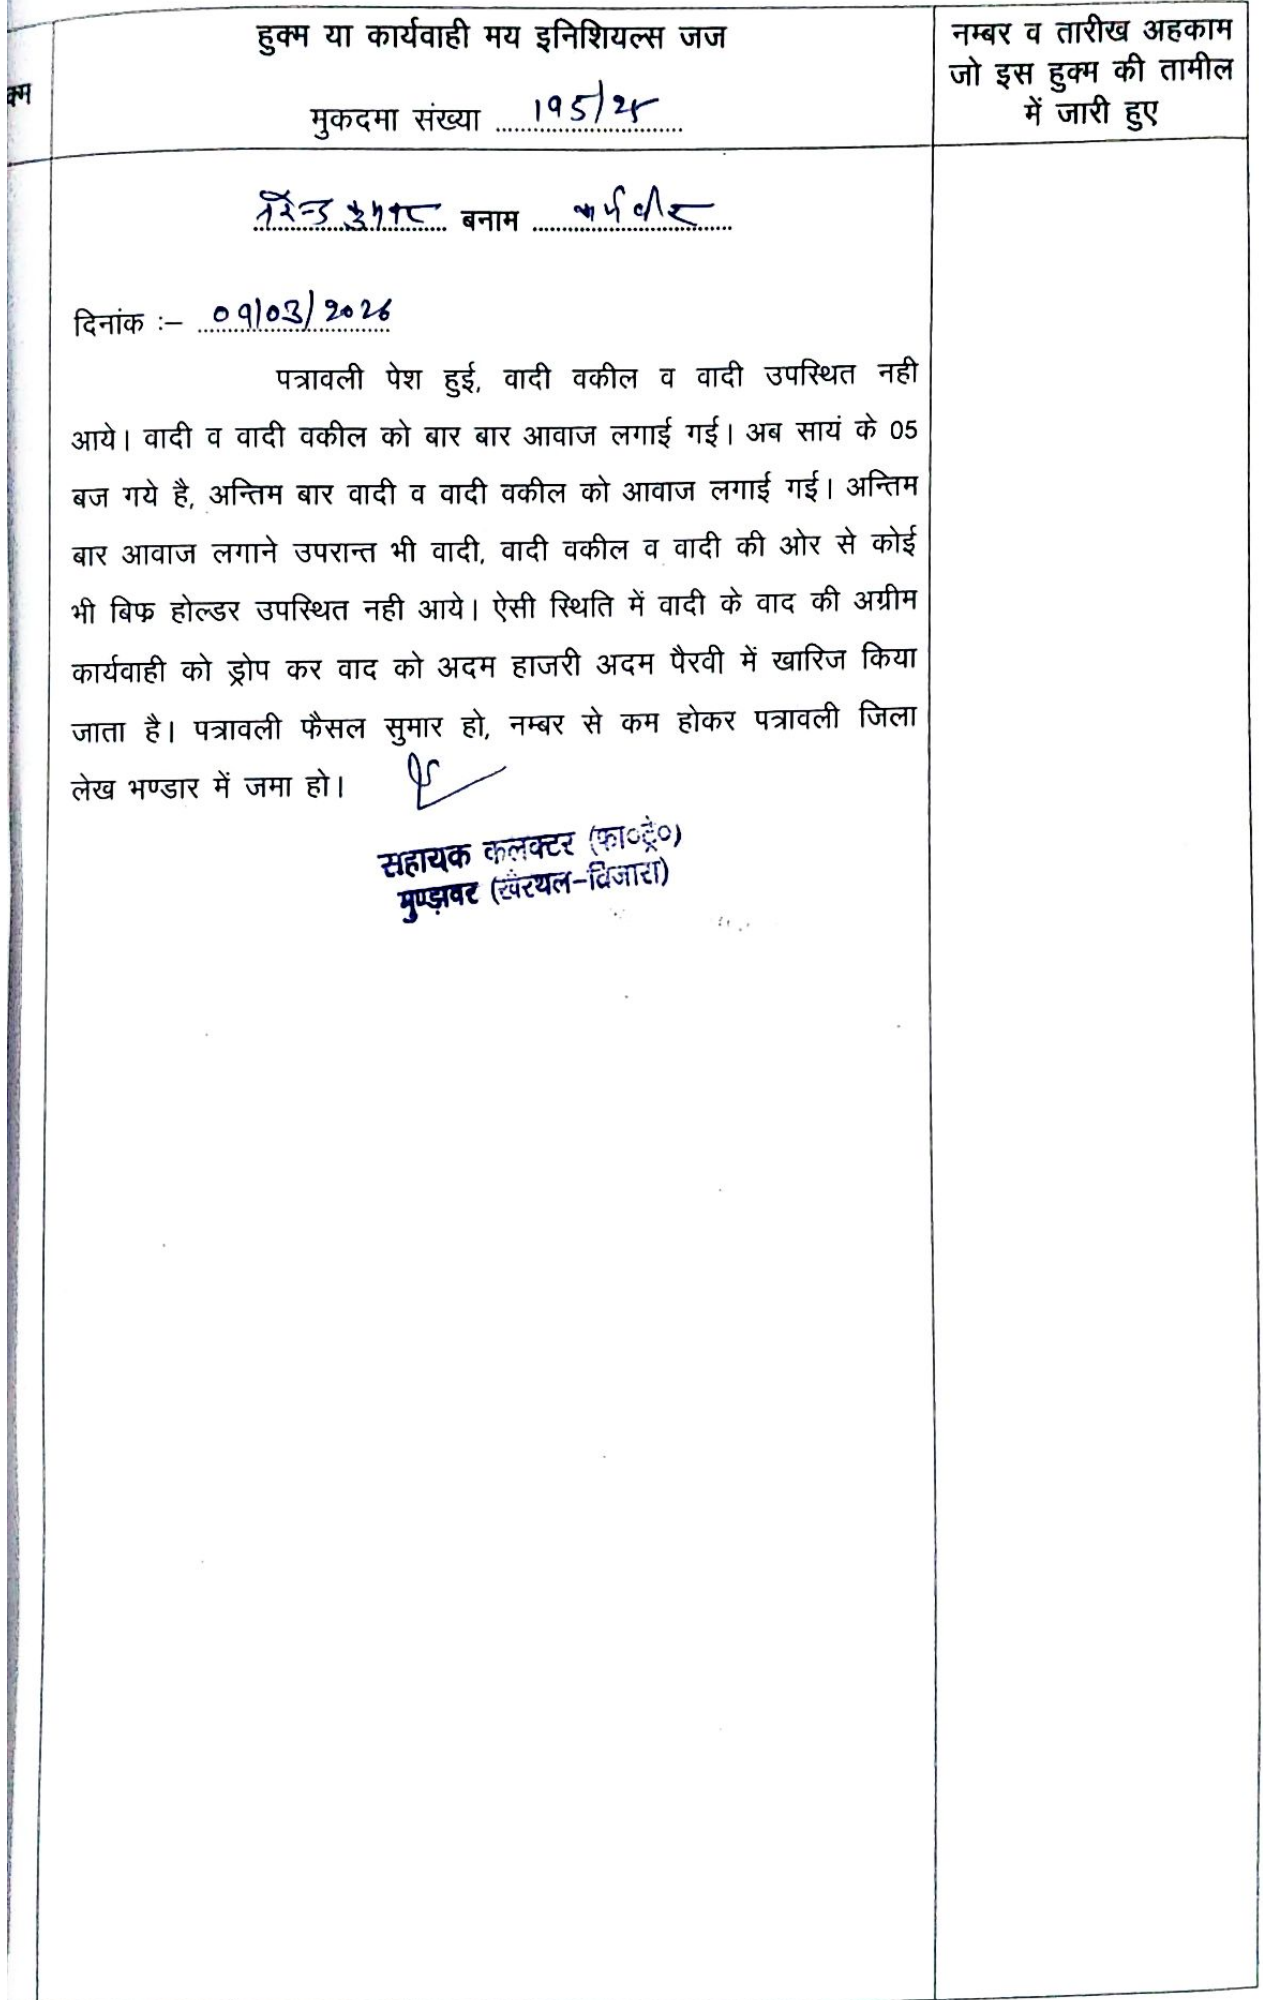 क्म
हुक्म या कार्यवाही मय इनिशियल्स जज
मुकदमा संख्या 195/25
नम्बर व तारीख अहकाम
जो इस हुक्म की तामील
में जारी हुए
नरेन्द्र कुमार बनाम कर्मवीर
दिनांक :– 09/03/2026
पत्रावली पेश हुई, वादी वकील व वादी उपस्थित नही
आये। वादी व वादी वकील को बार बार आवाज लगाई गई। अब सायं के 05
बज गये है, अन्तिम बार वादी व वादी वकील को आवाज लगाई गई। अन्तिम
बार आवाज लगाने उपरान्त भी वादी, वादी वकील व वादी की ओर से कोई
भी बिफ्र होल्डर उपस्थित नही आये। ऐसी स्थिति में वादी के वाद की अग्रीम
कार्यवाही को ड्रोप कर वाद को अदम हाजरी अदम पैरवी में खारिज किया
जाता है। पत्रावली फैसल सुमार हो, नम्बर से कम होकर पत्रावली जिला
लेख भण्डार में जमा हो।
सहायक कलक्टर (फा०ट्रे०)
मुण्डावर (खैरथल-तिजारा)